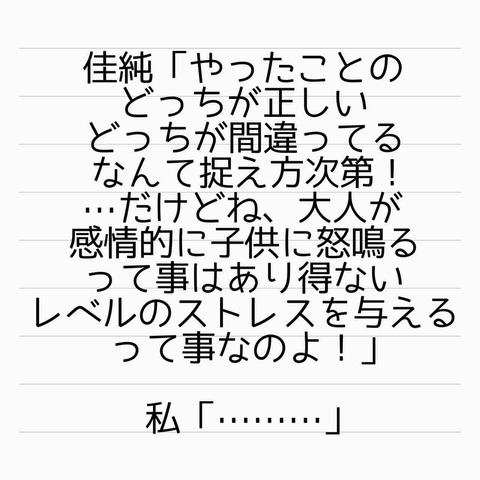 佳純「やったことの
どっちが正しい
どっちが間違ってる
なんて捉え方次第！
…だけどね、大人が
感情的に子供に怒鳴る
って事はあり得ない
レベルのストレスを与える
って事なのよ！」
私「………」